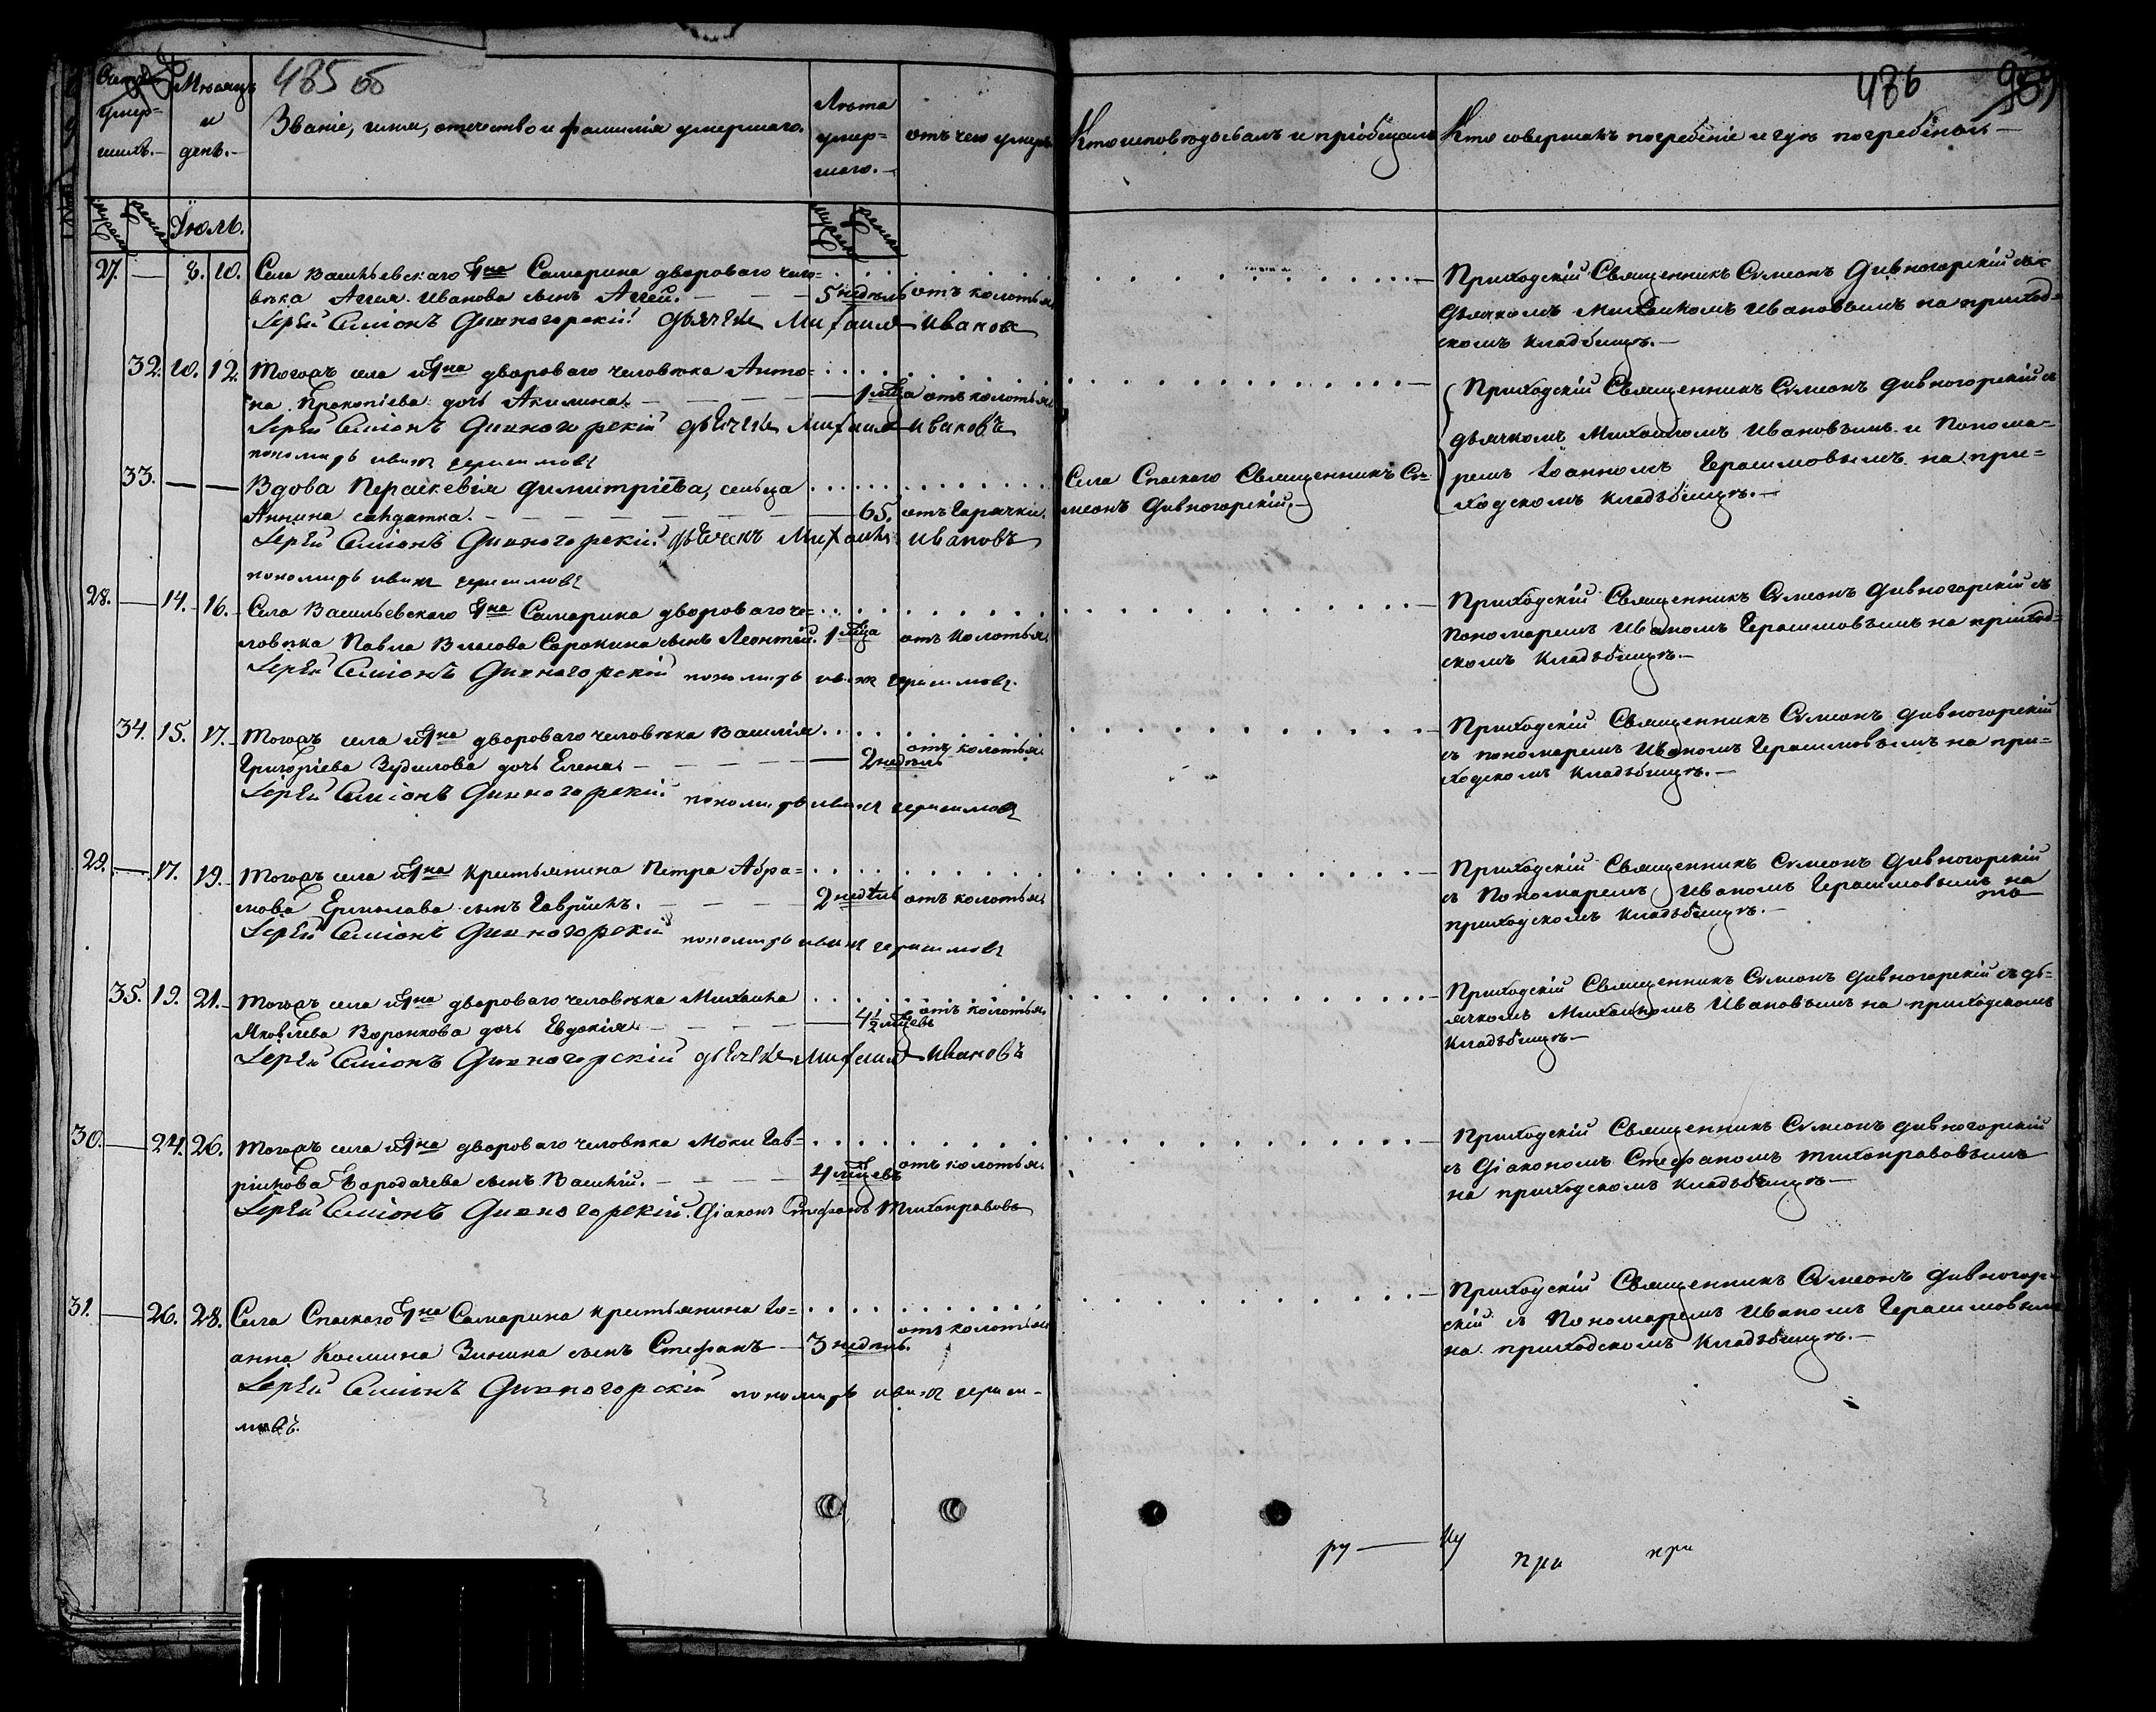 485 об
486
Счетъ умер-
шихъ.
Мѣсяцъ
и
день.
Званіе, имя, отечество и фамилія умершаго.
Лѣта
умер-
шаго.
отъ чего умеръ
Кто исповѣдывалъ и пріобщалъ
Кто совершалъ погребеніе и гдѣ погребены
мужеска
женска
Іюль.
мужеска
женска
27. — 8. 10. Села Васильевскаго Гна Самарина двороваго чело-
вѣка Аггея Иванова сынъ Аггей. — 5 недѣль отъ колотья
Іерей Симіонъ Дивногорскій дьячекъ Михаилъ Ивановъ
Приходскій Священникъ Сѵмеонъ Дивногорскій съ
дьячкомъ Михаиломъ Ивановымъ на приход-
скомъ кладбищѣ. —
32. 10. 12. Тогожъ села и Гна двороваго человѣка Анто-
на Прокопіева дочь Акилина. — 1 мца отъ колотья
Іерей Симіонъ Дивногорскій дьячекъ Михаилъ Ивановъ
пономарь иванъ герасимовъ
Приходскій Священникъ Сѵмеонъ Дивногорскій съ
дьячкомъ Михаиломъ Ивановымъ и Понома-
ремъ Іоанномъ Герасимовымъ на при-
ходскомъ кладбищѣ. —
33. — — Вдова Параскевія Димитріева, сельца
Аннина салдатка. — 65. отъ горячки.
Іерей Симіонъ Дивногорскій дьячекъ Михаилъ Ивановъ
пономарь иванъ герасимовъ
Села Спаскаго Священникъ Сѵ-
меонъ Дивногорскій. —
28. — 14. 16. Села Васильевскаго Гна Самарина двороваго че-
ловѣка Павла Власова Сорокина сынъ Леонтій. 1 мца отъ колотья
Іерей Симіонъ Дивногорскій пономарь иванъ герасимовъ
Приходскій Священникъ Сѵмеонъ Дивногорскій съ
Пономаремъ Иваномъ Герасимовымъ на приход-
скомъ кладбищѣ. —
34. 15. 17. Тогожъ села и Гна двороваго человѣка Василія
Григоріева Зудилова дочь Елена. — 2 недѣль отъ колотья
Іерей Симіонъ Дивногорскій пономарь иванъ герасимовъ
Приходскій Священникъ Сѵмеонъ Дивногорскій
съ пономаремъ Иваномъ Герасимовымъ на при-
ходскомъ кладбищѣ. —
29. — 17. 19. Тогожъ села и Гна крестьянина Петра Абра-
мова Ермолаева сынъ Гавріилъ. — 2 недѣль отъ колотья
Іерей Симіонъ Дивногорскій пономарь иванъ герасимовъ
Приходскій Священникъ Сѵмеонъ Дивногорскій
съ Пономаремъ Иваномъ Герасимовымъ на
приходскомъ кладбищѣ. —
35. 19. 21. Тогожъ села и Гна двороваго человѣка Михаила
Яковлева Воронкова дочь Евдокія. — 4 1/2 мцевъ отъ колотья
Іерей Симіонъ Дивногорскій дьячекъ Михаилъ Ивановъ
Приходскій Священникъ Сѵмеонъ Дивногорскій съ дь-
ячкомъ Михаиломъ Ивановымъ на приходскомъ
кладбищѣ. —
30. — 24. 26. Тогожъ села и Гна двороваго человѣка Моки Гав-
рилова Бородачева сынъ Василій. — 4 мцевъ отъ колотья
Іерей Симіонъ Дивногорскій. Діаконъ Стефанъ Тихонравовъ
Приходскій Священникъ Сѵмеонъ Дивногорскій
съ Діакономъ Стефаномъ Тихонравовымъ
на приходскомъ кладбищѣ —
31. — 26. 28. Села Спаскаго Гна Самарина крестьянина Іо-
анна Косьмина Зинина сынъ Стефанъ — 3 недѣль. отъ колотья
Іерей Симіонъ Дивногорскій пономарь иванъ гераси-
мовъ.
Приходскій Священникъ Сѵмеонъ Дивногор-
скій съ Пономаремъ Иваномъ Герасимовымъ
на приходскомъ кладбищѣ. —
ру — ку
при при